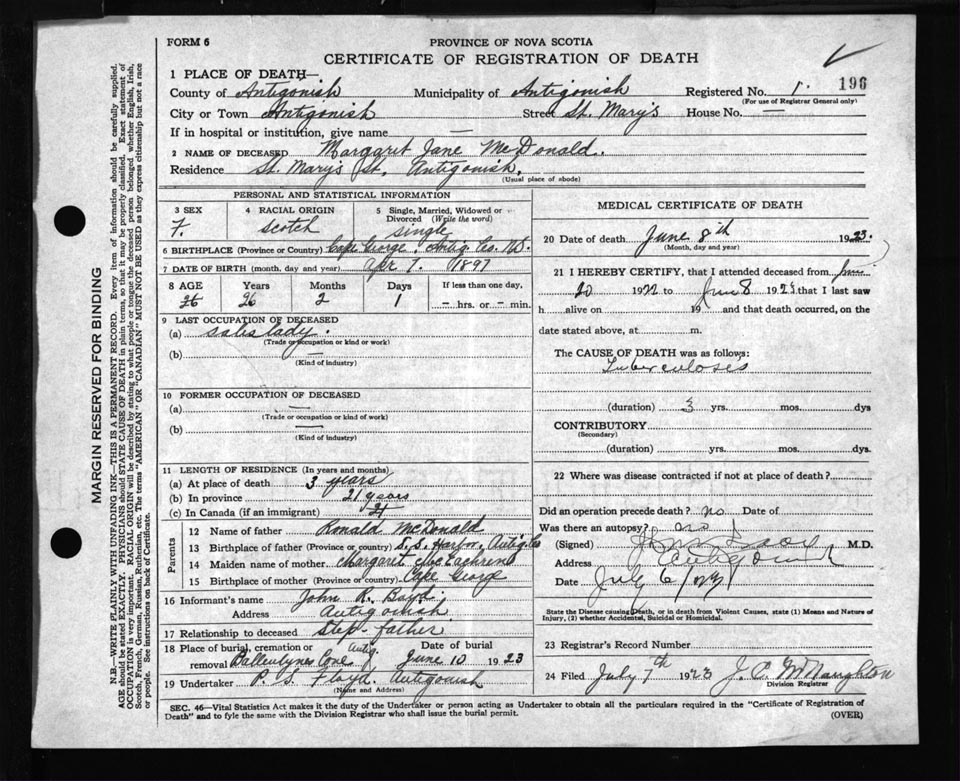 FORM 6
PROVINCE OF NOVA SCOTIA
CERTIFICATE OF REGISTRATION OF DEATH
1 PLACE OF DEATH—
County of Antigonish Municipality of Antigonish Registered No. 1. 196
(For use of Registrar General only)
City or Town Antigonish Street St. Mary's House No. —
If in hospital or institution, give name —
2 NAME OF DECEASED Margaret Jane McDonald.
Residence St. Mary's St. Antigonish.
(Usual place of abode)
PERSONAL AND STATISTICAL INFORMATION
3 SEX 4 RACIAL ORIGIN 5 Single, Married, Widowed or Divorced (Write the word)
F. Scotch single
6 BIRTHPLACE (Province or Country) Cape George, Antig. Co. N.S.
7 DATE OF BIRTH (month, day and year) Apr 7. 1897
8 AGE Years Months Days If less than one day,
26 26 2 1 — hrs. or — min.
9 LAST OCCUPATION OF DECEASED
(a) saleslady.
(Trade or occupation or kind or work)
(b) —
(Kind of industry)
10 FORMER OCCUPATION OF DECEASED
(a) —
(Trade or occupation or kind of work)
(b) —
(Kind of industry)
11 LENGTH OF RESIDENCE (In years and months)
(a) At place of death 3 years
(b) In province 21 years
(c) In Canada (if an immigrant)
Parents
12 Name of father Ronald McDonald
13 Birthplace of father (Province or country) S. S. Harbor, Antig. Co
14 Maiden name of mother Margaret McEachren
15 Birthplace of mother (Province or country) Cape George
16 Informant's name John R. Boyd
Address Antigonish
17 Relationship to deceased Step-father
18 Place of burial, cremation or removal Ballentyne Cove Antig. Date of burial June 10 1923
19 Undertaker P. S. Floyd. Antigonish
(Name and Address)
MEDICAL CERTIFICATE OF DEATH
20 Date of death June 8th 1923.
(Month, day and year)
21 I HEREBY CERTIFY, that I attended deceased from
20 1922 to June 8 1923 that I last saw
h alive on 19 and that death occurred, on the
date stated above, at m.
The CAUSE OF DEATH was as follows:
Tuberculoses
(duration) 3 yrs. mos. dys
CONTRIBUTORY
(Secondary)
(duration) yrs. mos. dys
22 Where was disease contracted if not at place of death?
Did an operation precede death? no Date of
Was there an autopsy? no
(Signed) M.D.
Address Antigonish
Date July 6 /23
State the Disease causing Death, or in death from Violent Causes, state (1) Means and Nature of
Injury, (2) whether Accidental, Suicidal or Homicidal.
23 Registrar's Record Number
24 Filed July 7th 1923 J. C. McNaughton
Division Registrar
SEC. 46—Vital Statistics Act makes it the duty of the Undertaker or person acting as Undertaker to obtain all the particulars required in the "Certificate of Registration of
Death" and to fyle the same with the Division Registrar who shall issue the burial permit. (OVER)
MARGIN RESERVED FOR BINDING
N.B.—WRITE PLAINLY WITH UNFADING INK—THIS IS A PERMANENT RECORD. Every item of information should be carefully supplied.
AGE should be stated EXACTLY. PHYSICIANS should STATE CAUSE OF DEATH in plain terms, so that it may be properly classified. Exact statement of
OCCUPATION is very important. RACIAL ORIGIN will be described by stating to what people or tongue the deceased person belonged whether English, Irish,
Scotch, French, German, Russian, Ruthenian, etc. The terms "AMERICAN" OR "CANADIAN" MUST NOT BE USED as they express citizenship but not a race
or people. See instructions on back of Certificate.